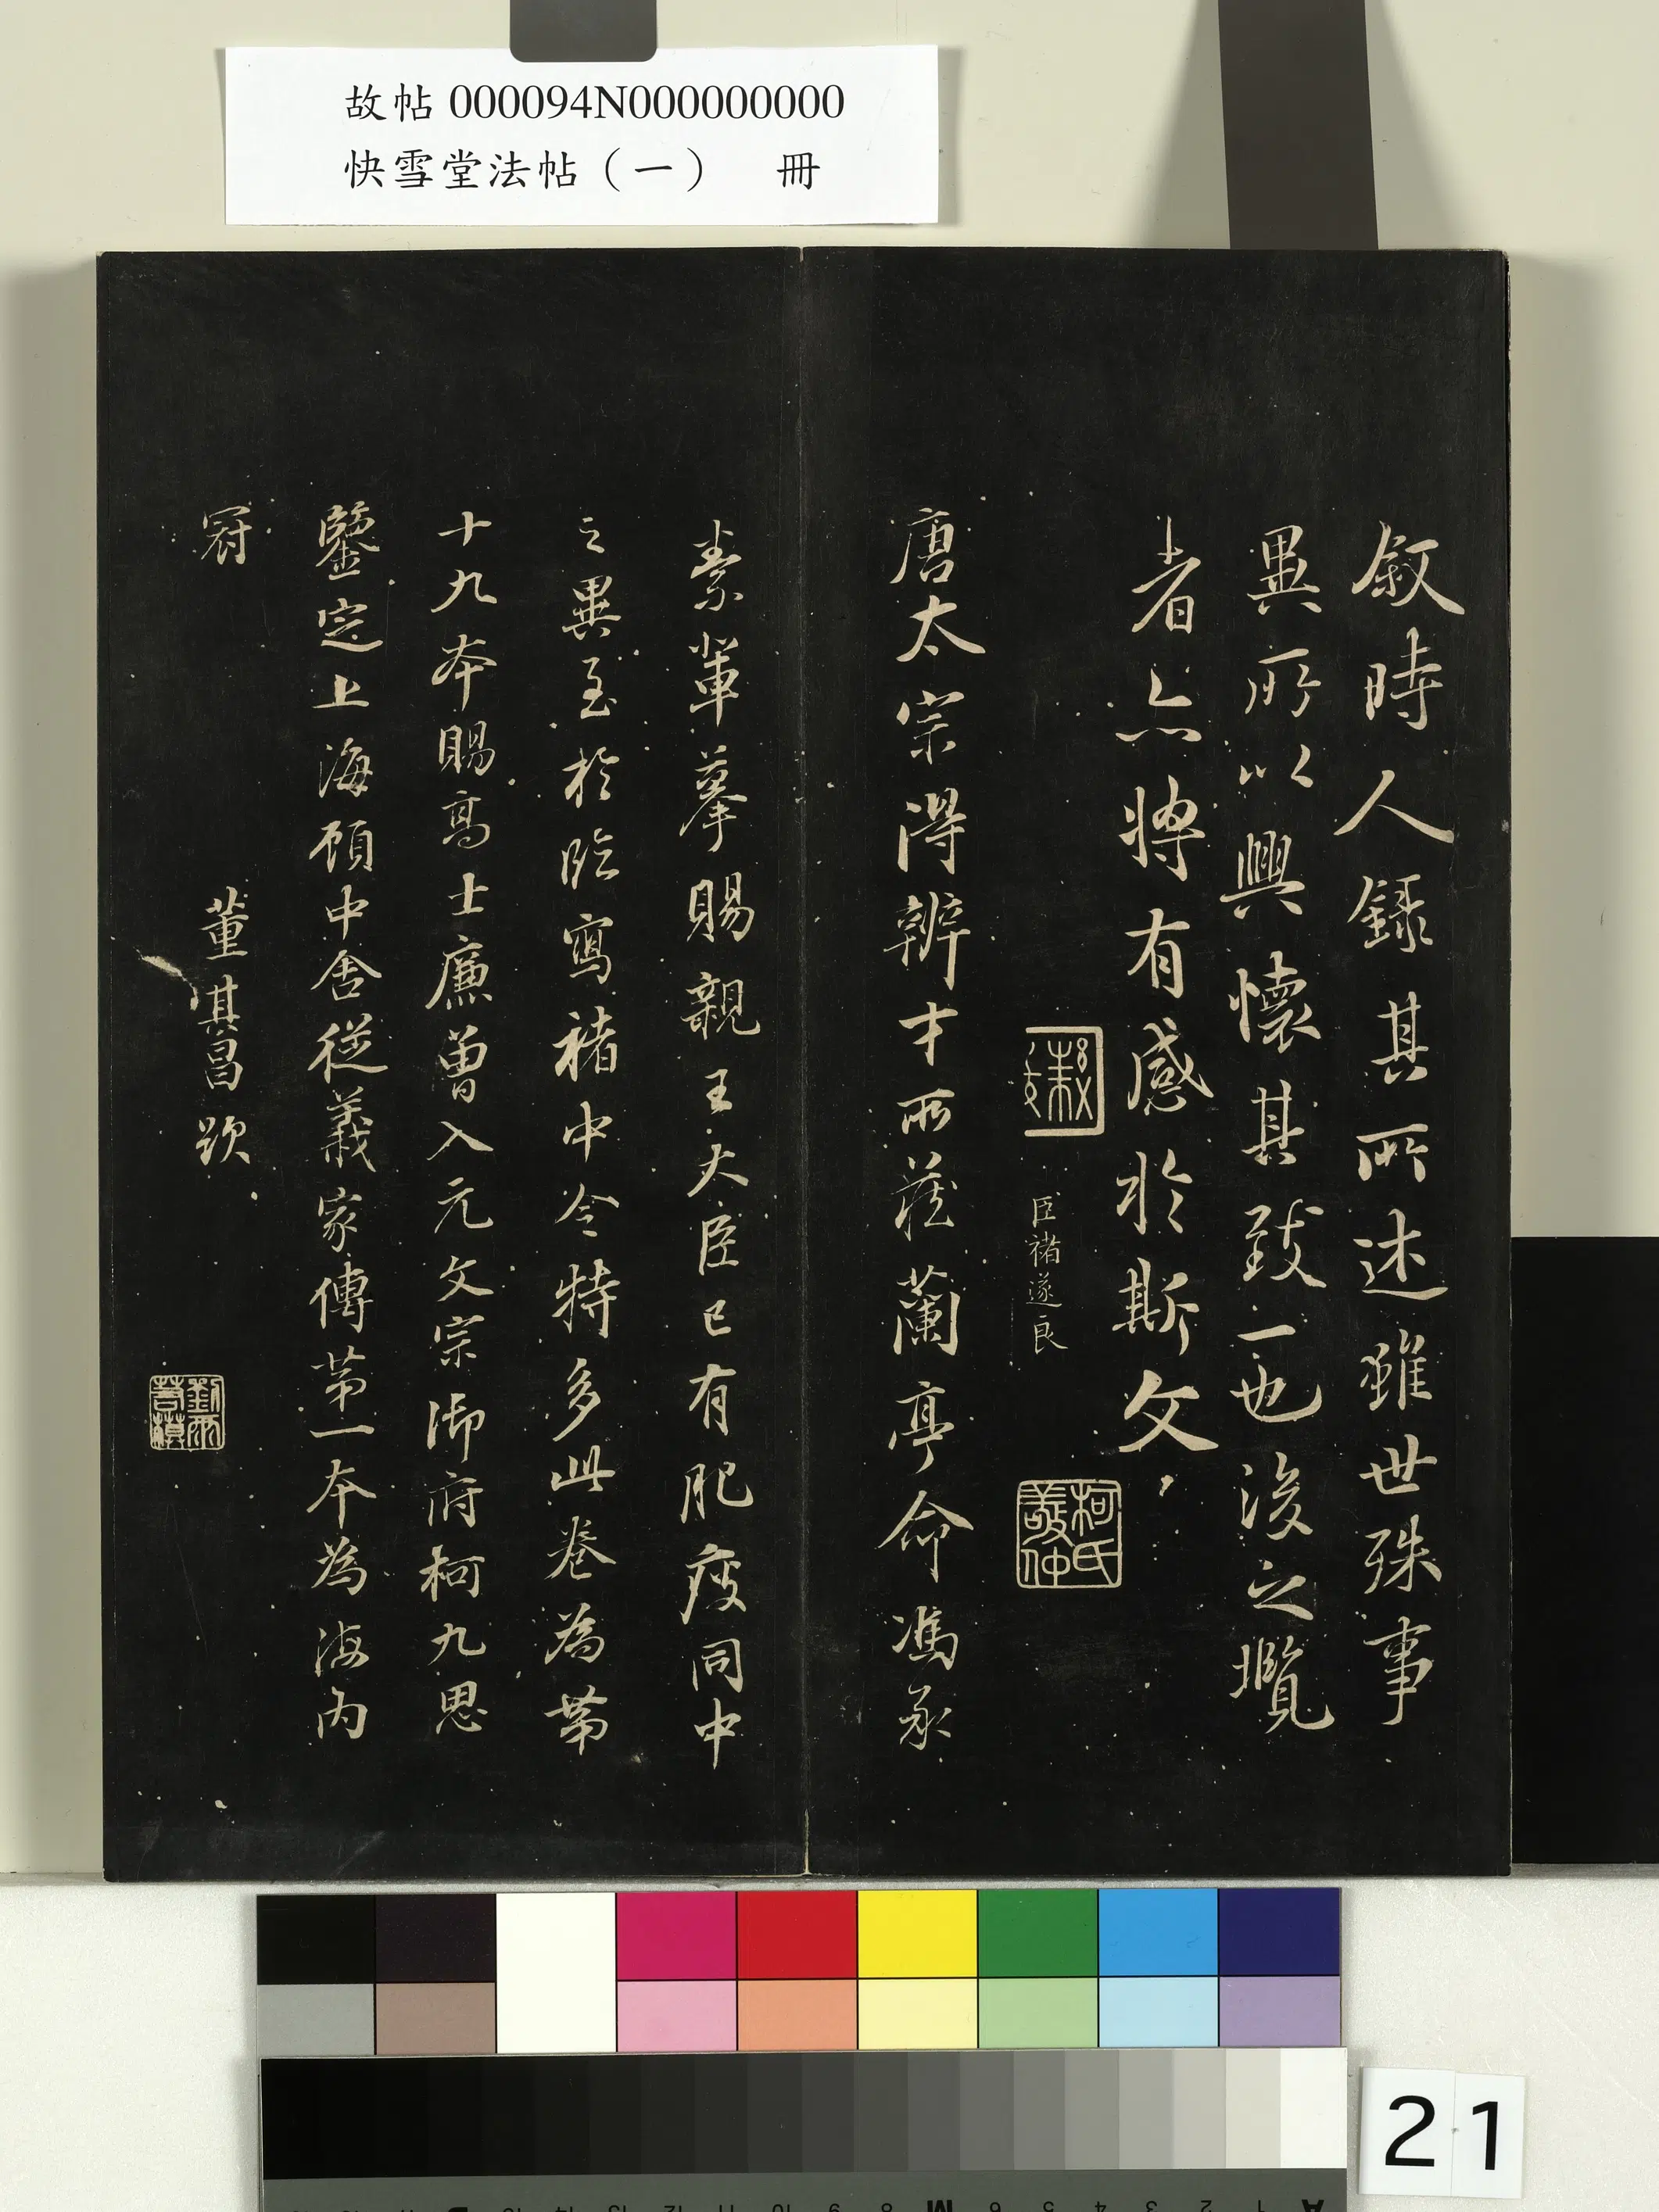 故帖 000094N000000000
快雪堂法帖（一）　冊
敘時人錄其所述雖世殊事
異所以興懷其致一也後之攬
者亦將有感於斯文
臣褚遂良
柯氏敬仲
唐太宗得辨才所藏蘭亭命馮承
素輩摹賜親王大臣已有肥瘦同中
之異至於臨寫褚中令特多此卷為第
十九本賜高士廉曾入元文宗御府柯九思
鑒定上海顧中舍從義家傳第一本為海内
冠
董其昌跋
劉雨若摸
21
12 11 10 9 8 M 6 5 4 3 2 1 A